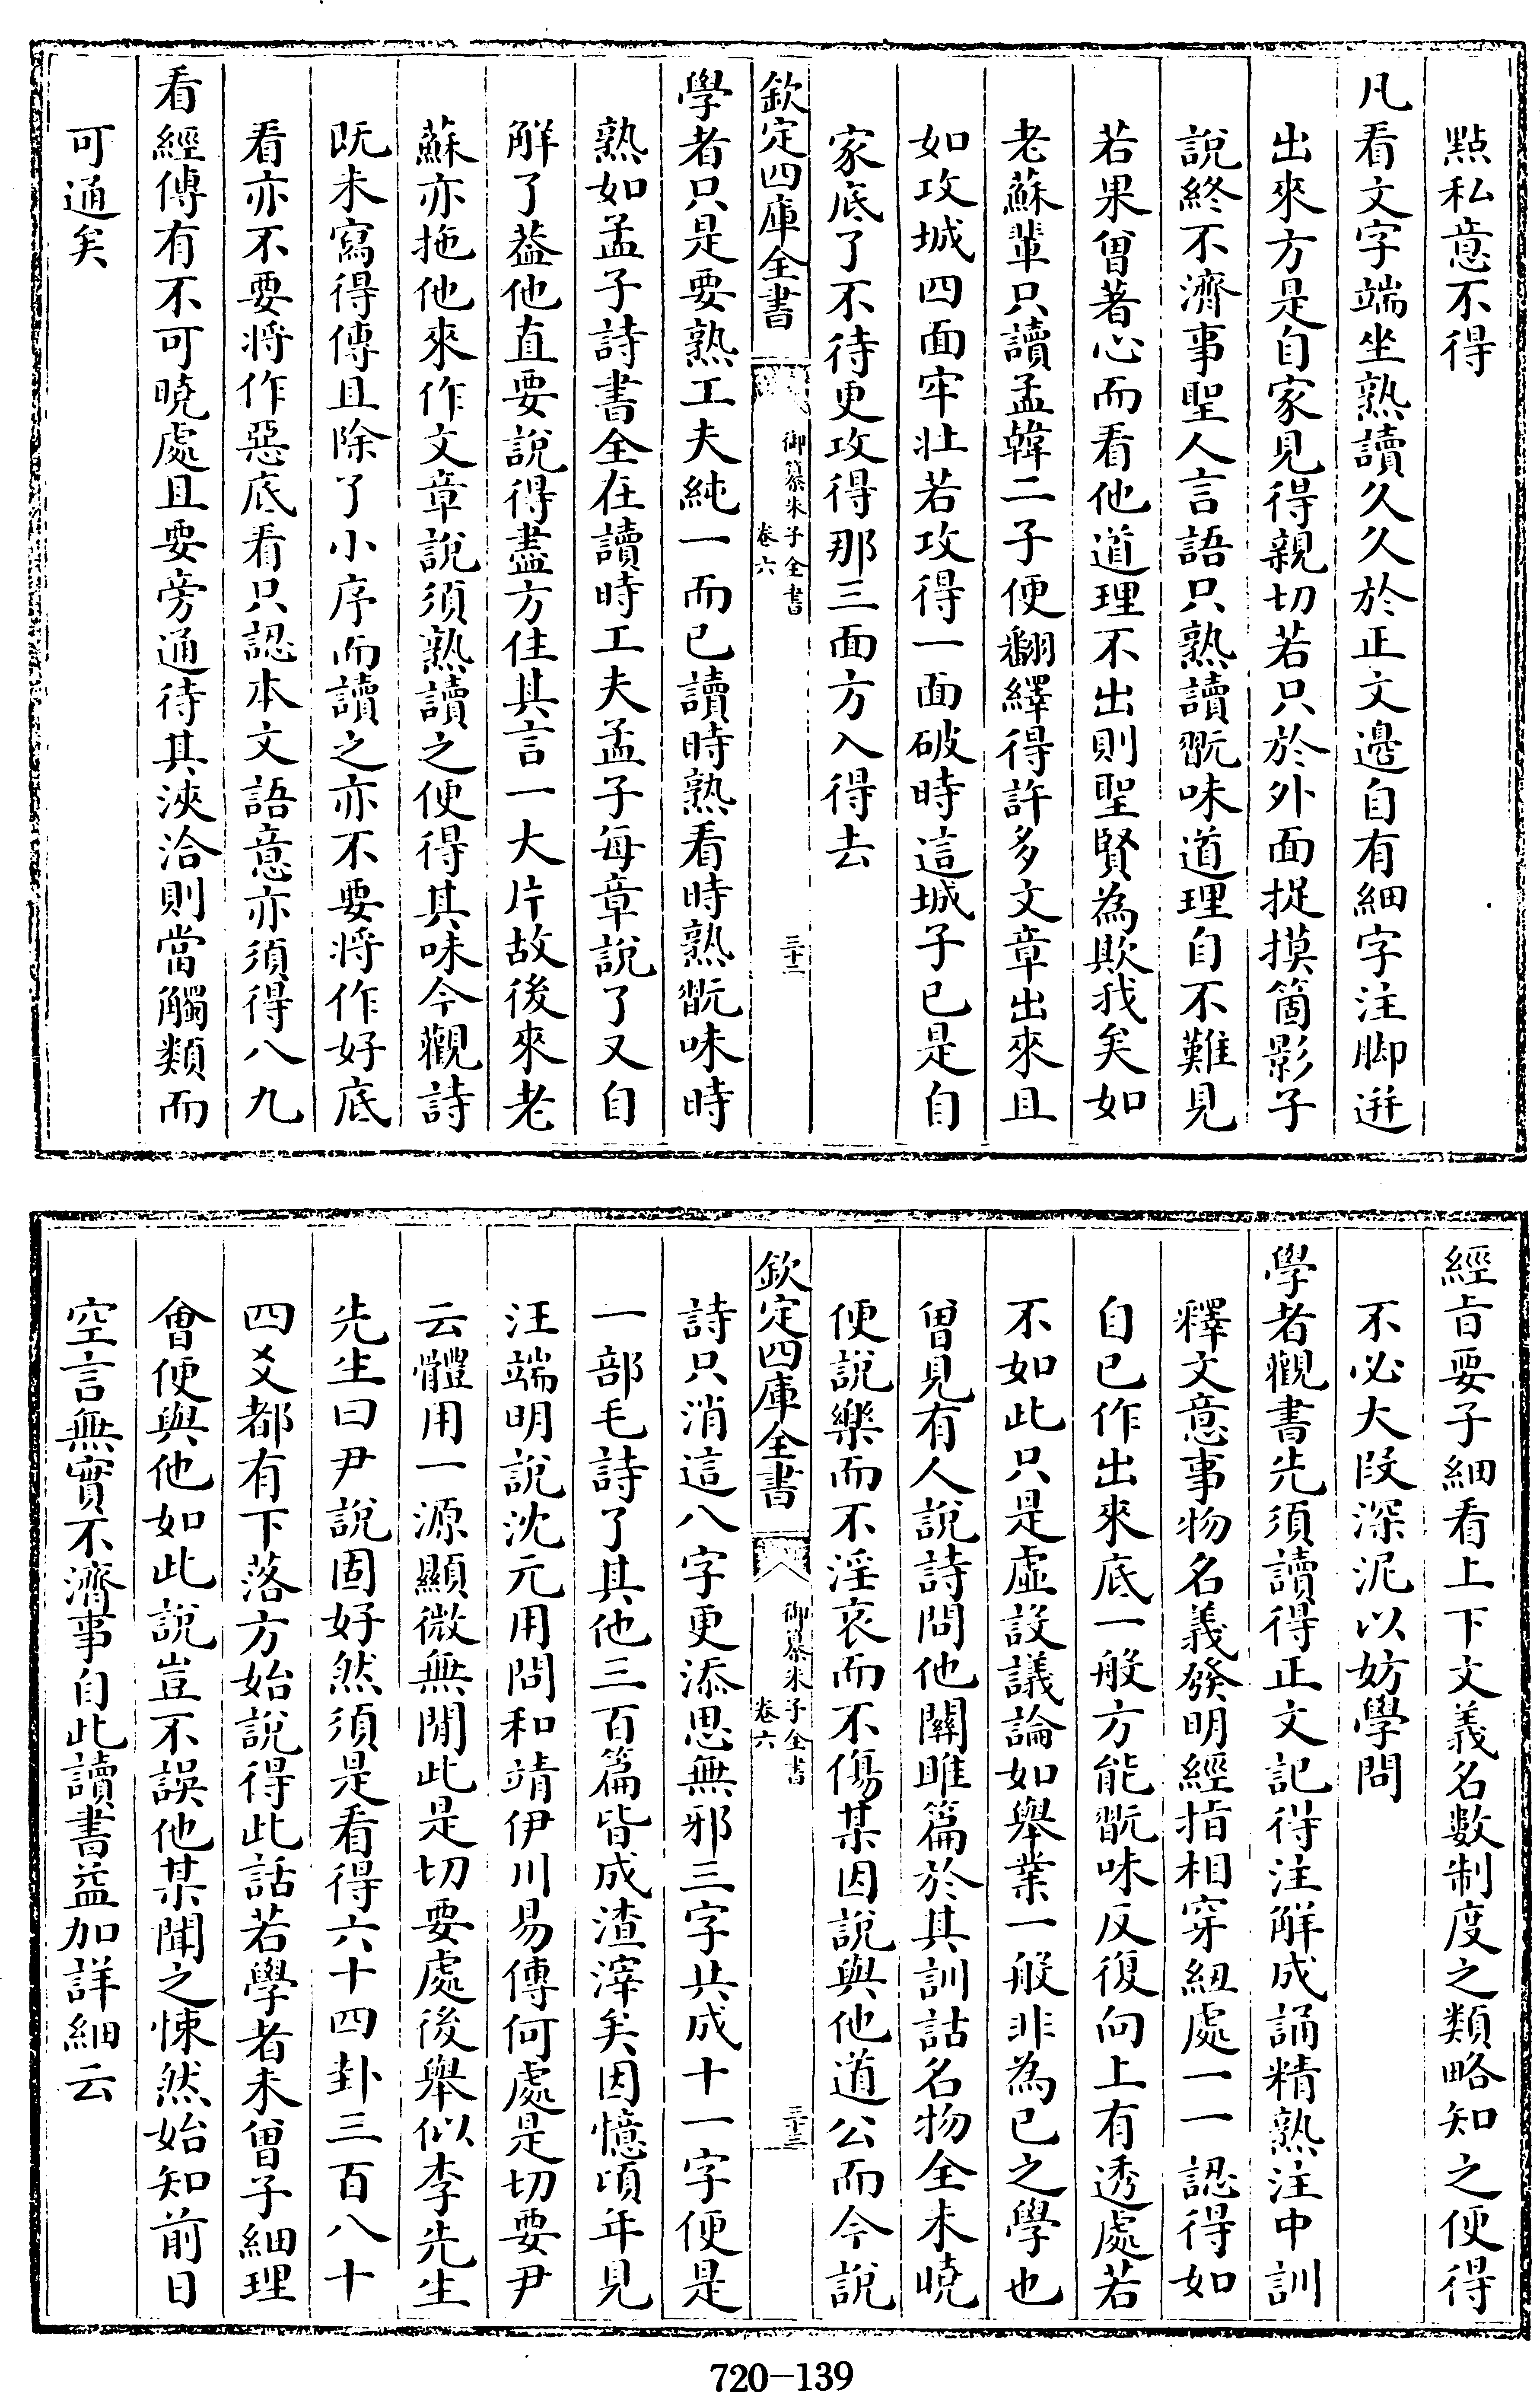 點私意不得
凡看文字端坐熟讀久久於正文邉自有細字注脚迸
出來方是自家見得親切若只於外面捉摸箇影子
說終不濟事聖人言語只熟讀翫味道理自不難見
若果曾著心而看他道理不出則聖賢為欺我矣如
老蘇輩只讀孟韓二子便翻繹得許多文章出來且
如攻城四面牢壯若攻得一面破時這城子已是自
家底了不待更攻得那三面方入得去
欽定四庫全書
御纂朱子全書
卷六
三十二
學者只是要熟工夫純一而已讀時熟看時熟翫味時
熟如孟子詩書全在讀時工夫孟子每章說了又自
解了葢他直要說得盡方住其言一大片故後來老
蘇亦拖他來作文章說須熟讀之便得其味今觀詩
既未寫得傳且除了小序而讀之亦不要將作好底
看亦不要將作惡底看只認本文語意亦須得八九
看經傳有不可曉處且要旁通待其浹洽則當觸類而
可通矣
經旨要子細看上下文義名數制度之類略知之便得
不必大段深泥以妨學問
學者觀書先須讀得正文記得注解成誦精熟注中訓
釋文意事物名義發明經指相穿紐處一一認得如
自已作出來底一般方能翫味反復向上有透處若
不如此只是虛設議論如舉業一般非為已之學也
曽見有人說詩問他關雎篇於其訓詁名物全未曉
便說樂而不淫哀而不傷某因說與他道公而今說
欽定四庫全書
御纂朱子全書
卷六
三十三
詩只消這八字更添思無邪三字共成十一字便是
一部毛詩了其他三百篇皆成渣滓矣因憶頃年見
汪端明說沈元用問和靖伊川易傳何處是切要尹
云體用一源顯微無間此是切要處後舉似李先生
先生曰尹說固好然須是看得六十四卦三百八十
四爻都有下落方始說得此話若學者未曾子細理
會便與他如此說豈不誤他某聞之悚然始知前日
空言無實不濟事自此讀書益加詳細云
720-139